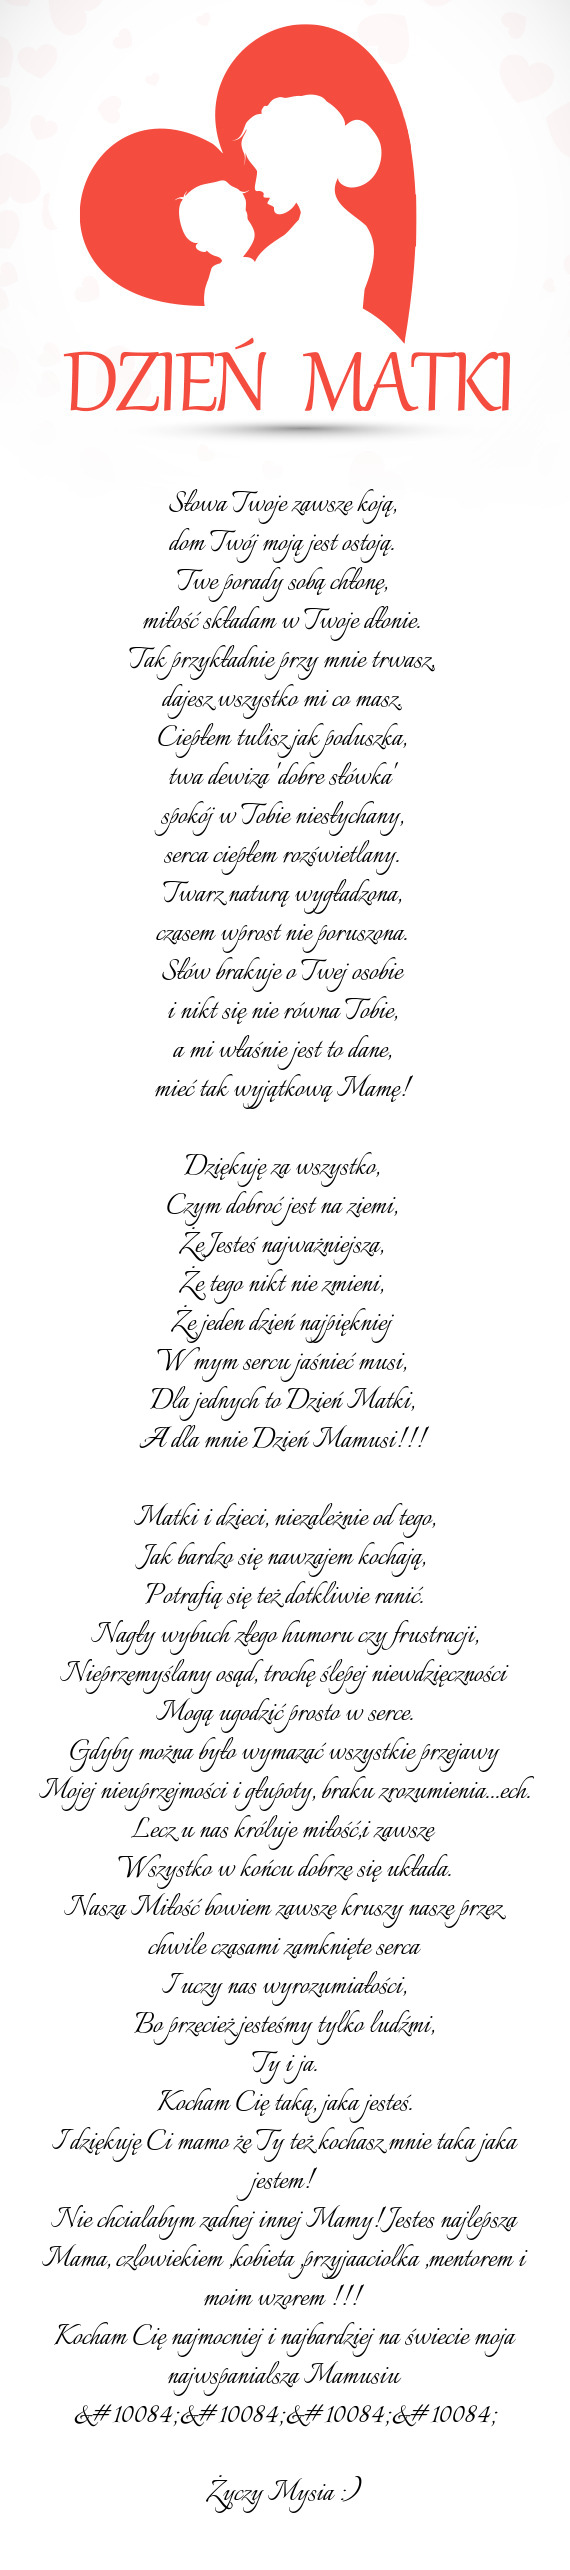 DZIEŃ MATKI
Słowa Twoje zawsze koją,
dom Twój moją jest ostoją.
Twe porady sobą chłonę,
miłość składam w Twoje dłonie.
Tak przykładnie przy mnie trwasz,
dajesz wszystko mi co masz.
Ciepłem tulisz jak poduszka,
twa dewiza 'dobre słówka'
spokój w Tobie niesłychany,
serca ciepłem rozświetlany.
Twarz naturą wygładzona,
czasem wprost nie poruszona.
Słów brakuje o Twej osobie
i nikt się nie równa Tobie,
a mi właśnie jest to dane,
mieć tak wyjątkową Mamę!
Dziękuję za wszystko,
Czym dobroć jest na ziemi,
Że Jesteś najważniejsza,
Że tego nikt nie zmieni,
Że jeden dzień najpiękniej
W mym sercu jaśnieć musi,
Dla jednych to Dzień Matki,
A dla mnie Dzień Mamusi!!!
Matki i dzieci, niezależnie od tego,
Jak bardzo się nawzajem kochają,
Potrafią się też dotkliwie ranić.
Nagły wybuch złego humoru czy frustracji,
Nieprzemyślany osąd, trochę ślepej niewdzięczności
Mogą ugodzić prosto w serce.
Gdyby można było wymazać wszystkie przejawy
Mojej nieuprzejmości i głupoty, braku zrozumienia...ech.
Lecz u nas króluje miłość,i zawsze
Wszystko w końcu dobrze się układa.
Nasza Miłość bowiem zawsze kruszy nasze przez
chwile czasami zamknięte serca
I uczy nas wyrozumiałości,
Bo przecież jesteśmy tylko ludźmi,
Ty i ja.
Kocham Cię taką, jaka jesteś.
I dziękuję Ci mamo że Ty też kochasz mnie taka jaka
jestem!
Nie chcialabym zadnej innej Mamy! Jestes najlepsza
Mama, czlowiekiem ,kobieta ,przyjaaciolka ,mentorem i
moim wzorem !!!
Kocham Cię najmocniej i najbardziej na świecie moja
najwspanialsza Mamusiu
&#10084;&#10084;&#10084;&#10084;
Życzy Mysia :)